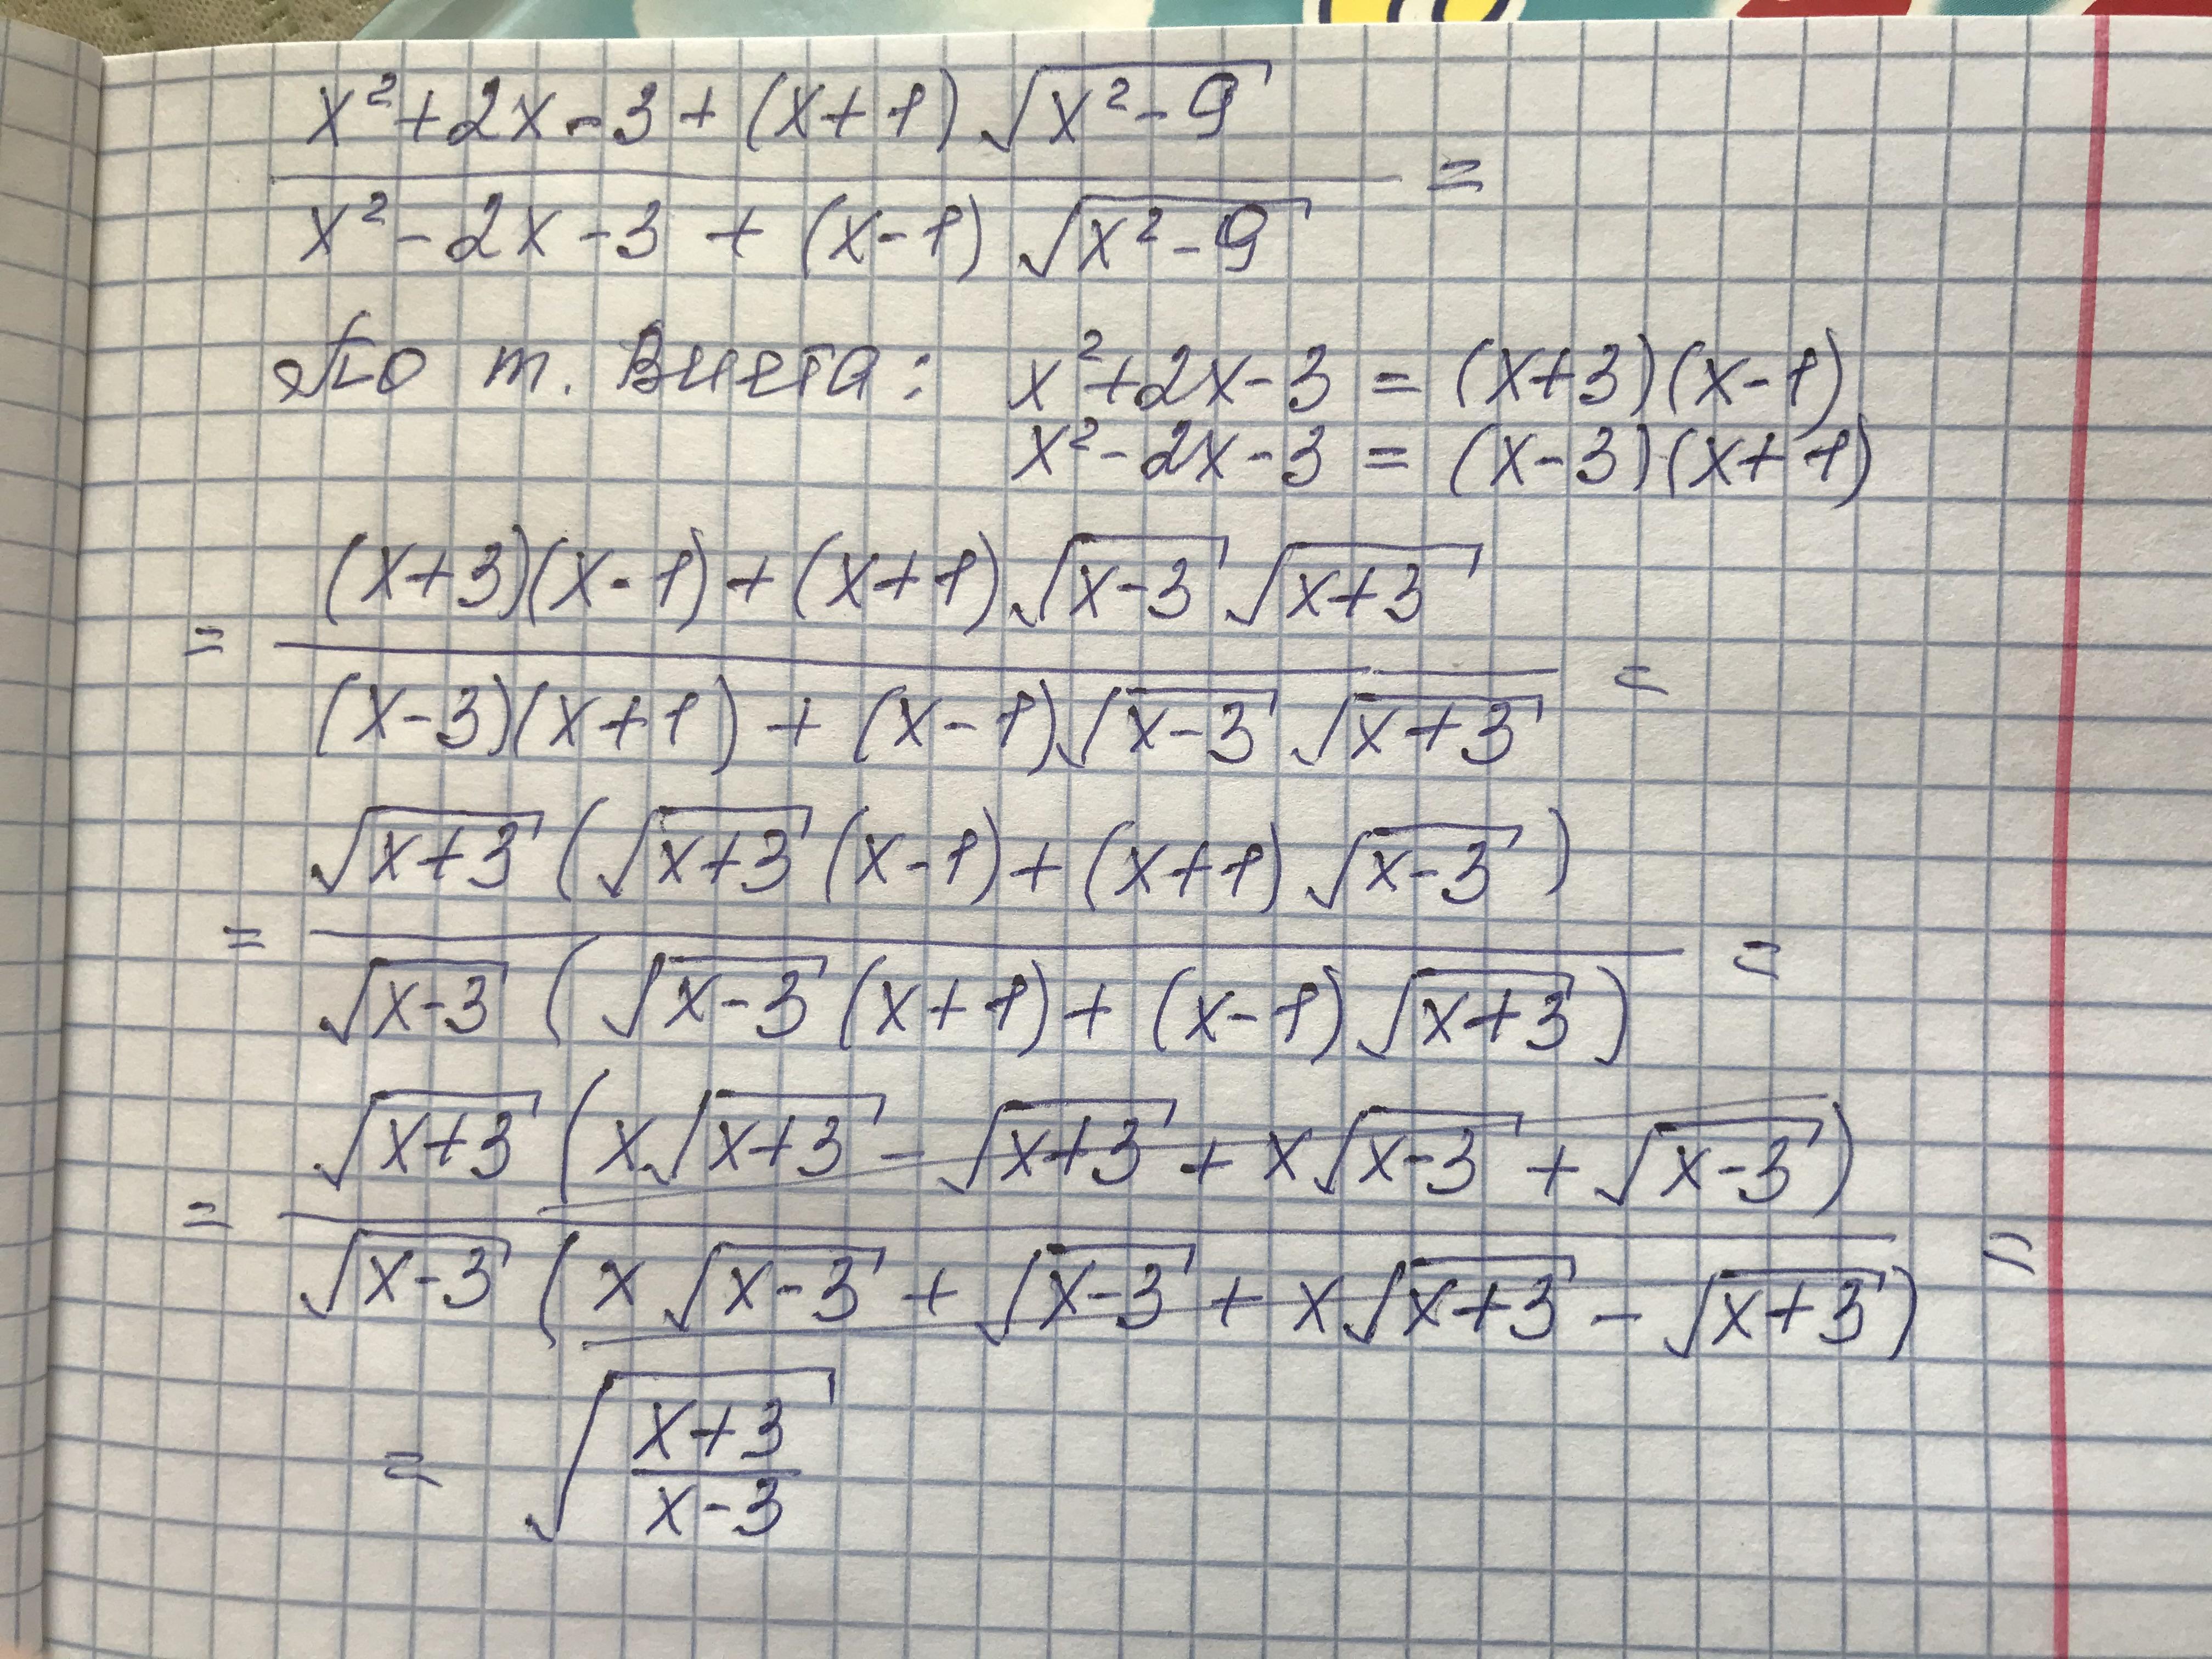 (x²+2x-3+(x+1)√(x²-9))/(x²-2x-3+(x-1)√(x²-9)) =
По т. Виета: x²+2x-3 = (x+3)(x-1)
x²-2x-3 = (x-3)(x+1)
= ((x+3)(x-1)+(x+1)√(x-3)√(x+3))/((x-3)(x+1)+(x-1)√(x-3)√(x+3)) =
= (√(x+3)(√(x+3)(x-1)+(x+1)√(x-3)))/(√(x-3)(√(x-3)(x+1)+(x-1)√(x+3))) =
= (√(x+3)(x√(x+3)-√(x+3)+x√(x-3)+√(x-3)))/(√(x-3)(x√(x-3)+√(x-3)+x√(x+3)-√(x+3))) =
= √((x+3)/(x-3))